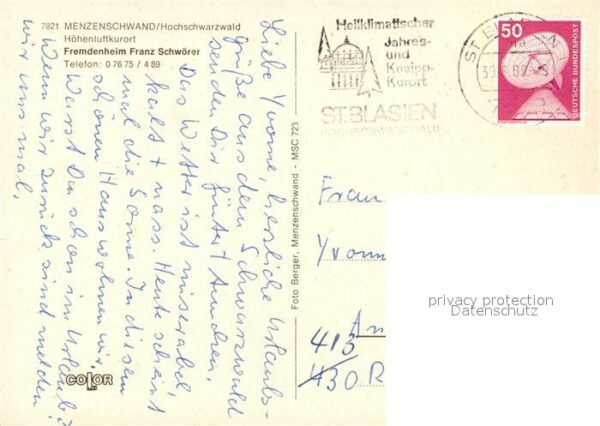 7821 MENZENSCHWAND/Hochschwarzwald
Höhenluftkurort
Fremdenheim Franz Schwörer
Telefon: 0 76 75 / 4 89
Liebe Yvonne, herzliche Urlaubs-
grüße aus dem Schwarzwald
senden Dir Günter +
Das Wetter ist miserabel
kalt + nass. Heute scheint
mal die Sonne. In diesem
schönen Haus wohnen wir.
Warst Du schon im Urlaub?
Wenn wir zurück sind melden
wir uns mal.
COLOR
Foto Berger, Menzenschwand - MSC 723
Heilklimatischer
Jahres-
und
Kneipp-
Kurort
ST.BLASIEN
HOCHSCHWARZWALD
ST BLASIEN
50
DEUTSCHE BUNDESPOST
Frau
Yvonn
413
430 R
privacy protection
Datenschutz